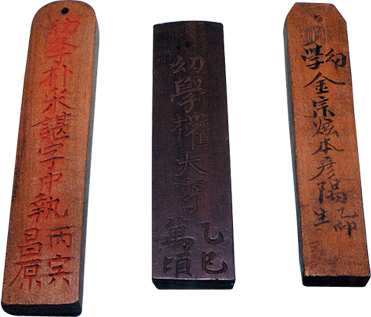 幼學朴永諶字中執
丙寅
昌原
幼學權大
乙巳
萬頃
幼學
金宗炫本彦陽
乙卯生